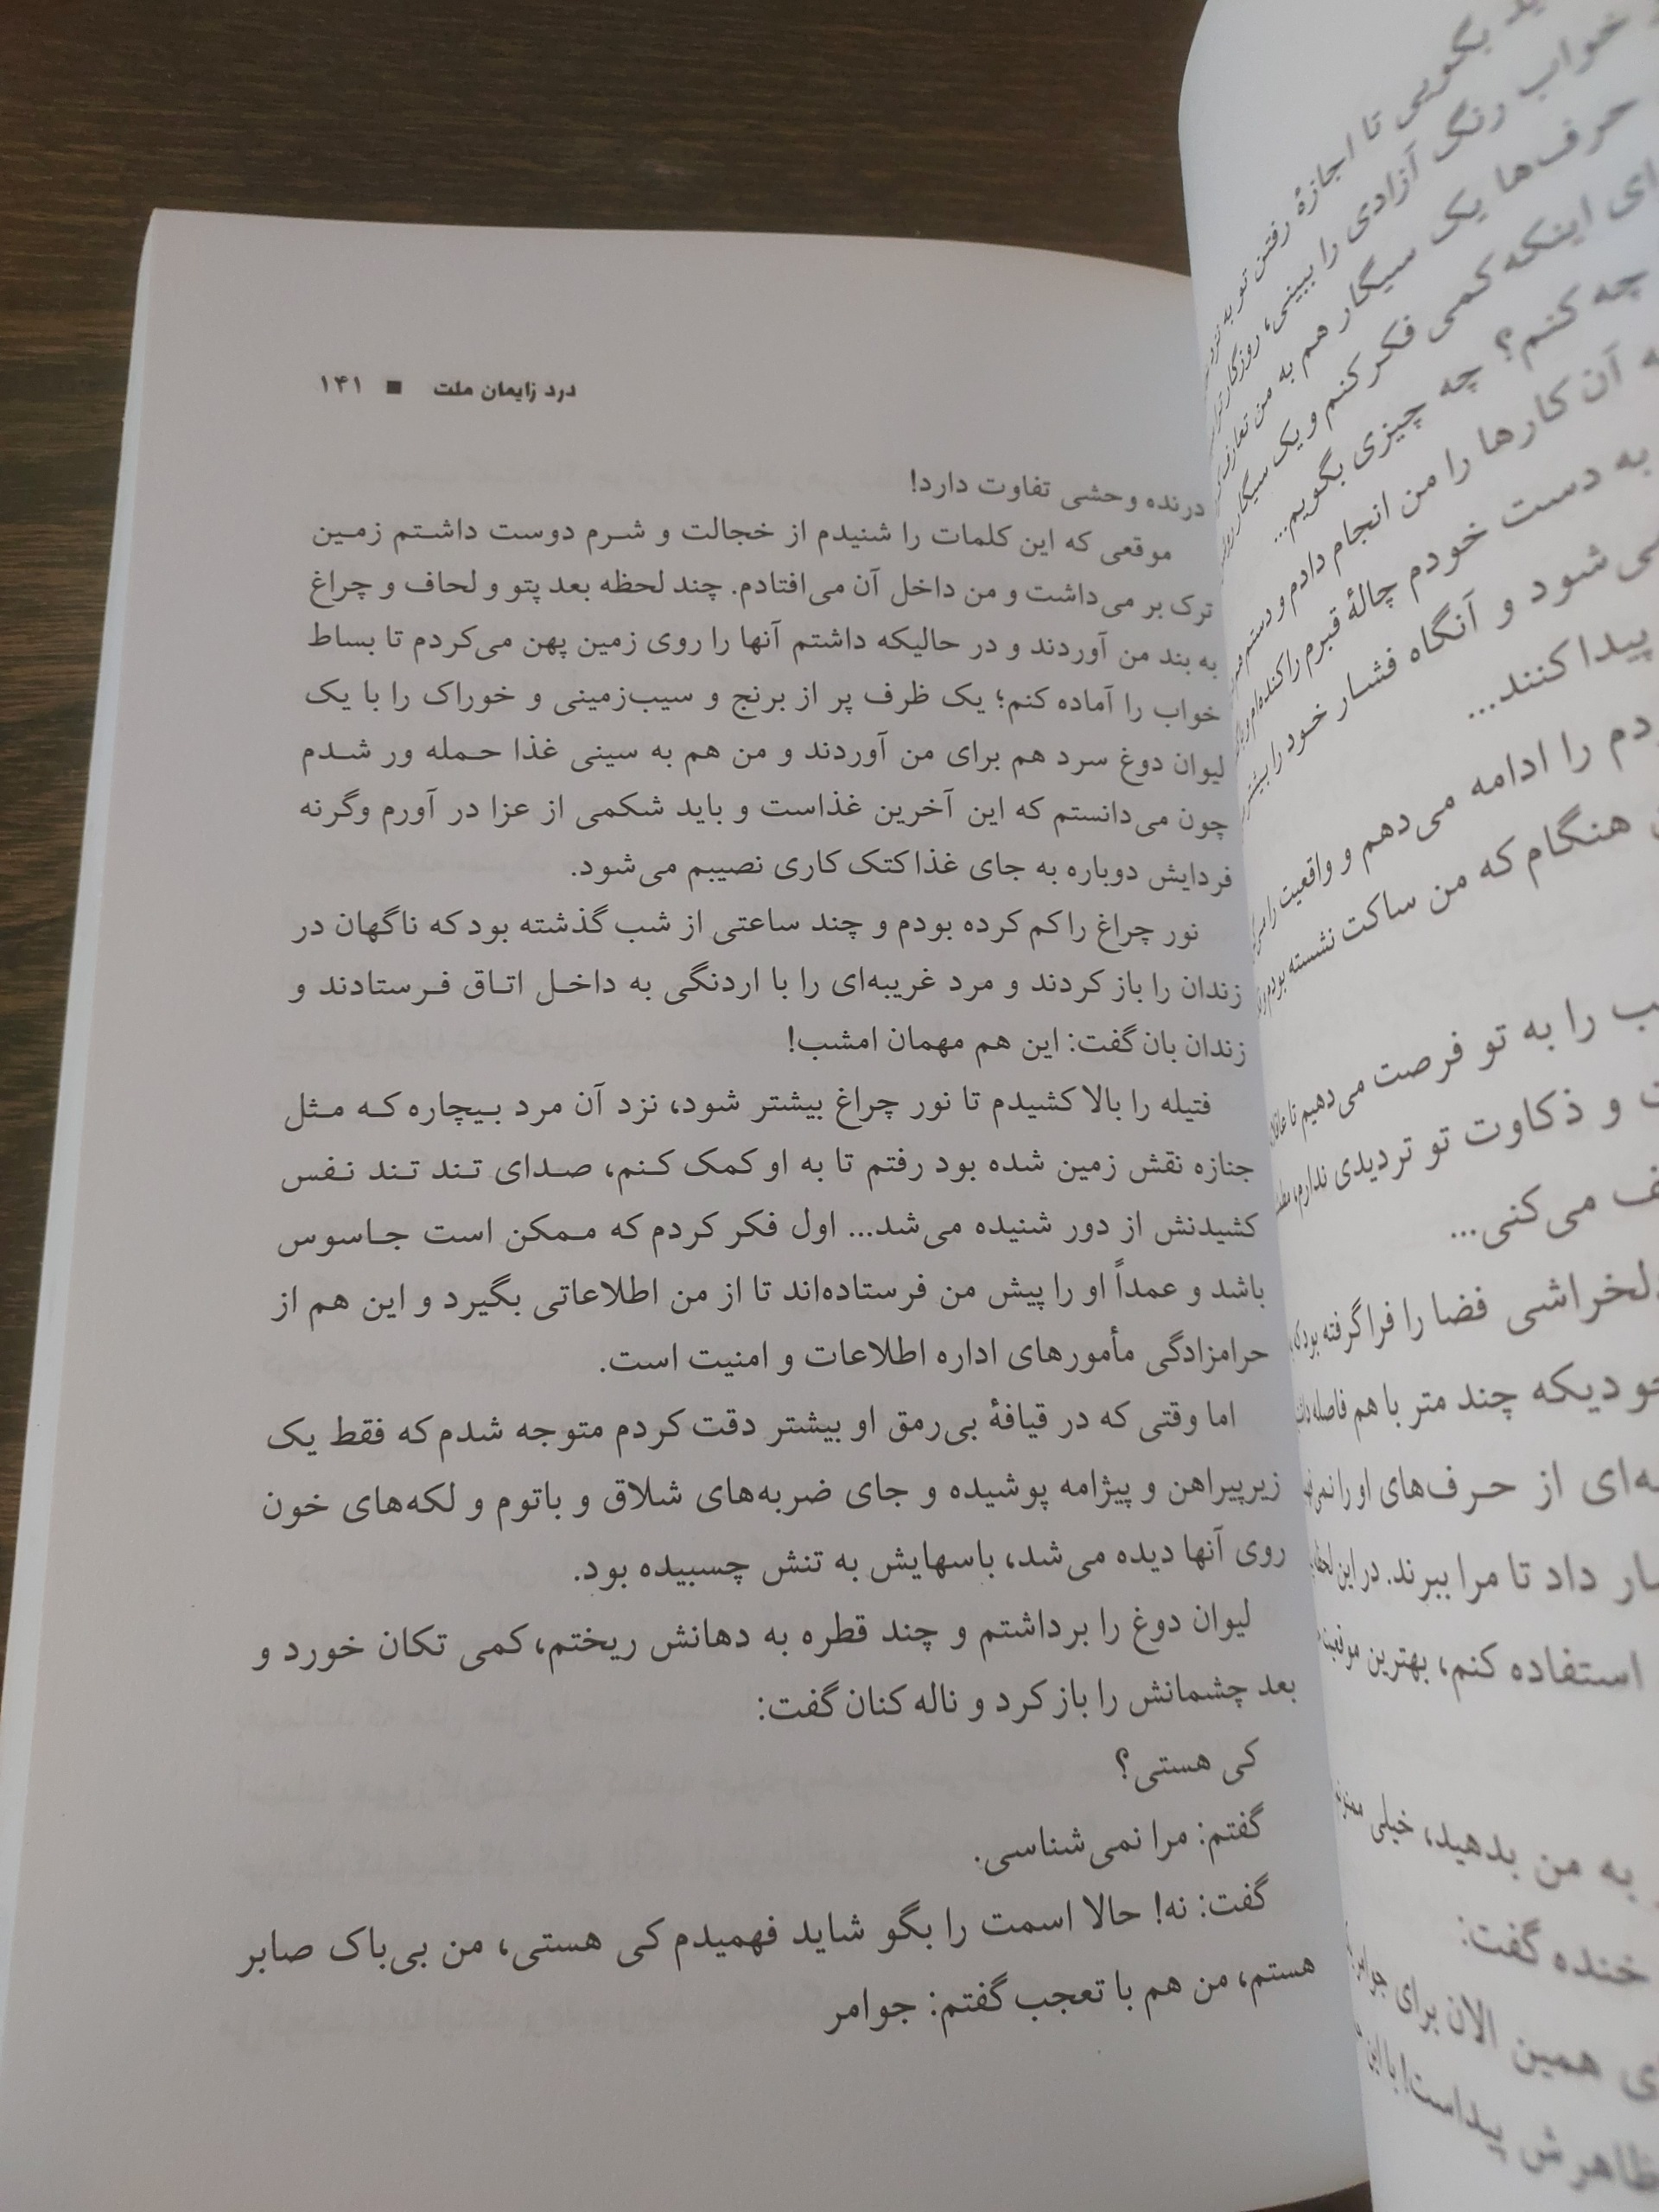 درد زایمان ملت ■ ۱۴۱
درنده وحشی تفاوت دارد!
موقعی که این کلمات را شنیدم از خجالت و شرم دوست داشتم زمین
ترک بر می‌داشت و من داخل آن می‌افتادم. چند لحظه بعد پتو و لحاف و چراغ
به بند من آوردند و در حالیکه داشتم آنها را روی زمین پهن می‌کردم تا بساط
خواب را آماده کنم؛ یک ظرف پر از برنج و سیب‌زمینی و خوراک را با یک
لیوان دوغ سرد هم برای من آوردند و من هم به سینی غذا حمله ور شدم
چون می‌دانستم که این آخرین غذاست و باید شکمی از عزا در آورم وگرنه
فردایش دوباره به جای غذا کتک کاری نصیبم می‌شود.
نور چراغ را کم کرده بودم و چند ساعتی از شب گذشته بود که ناگهان در
زندان را باز کردند و مرد غریبه‌ای را با اردنگی به داخل اتاق فرستادند و
زندان بان گفت: این هم مهمان امشب!
فتیله را بالا کشیدم تا نور چراغ بیشتر شود، نزد آن مرد بیچاره که مثل
جنازه نقش زمین شده بود رفتم تا به او کمک کنم، صدای تند تند نفس
کشیدنش از دور شنیده می‌شد... اول فکر کردم که ممکن است جاسوس
باشد و عمداً او را پیش من فرستاده‌اند تا از من اطلاعاتی بگیرد و این هم از
حرامزادگی مأمورهای اداره اطلاعات و امنیت است.
اما وقتی که در قیافهٔ بی‌رمق او بیشتر دقت کردم متوجه شدم که فقط یک
زیرپیراهن و پیژامه پوشیده و جای ضربه‌های شلاق و باتوم و لکه‌های خون
روی آنها دیده می‌شد، باسهایش به تنش چسبیده بود.
لیوان دوغ را برداشتم و چند قطره به دهانش ریختم، کمی تکان خورد و
بعد چشمانش را باز کرد و ناله کنان گفت:
کی هستی؟
گفتم: مرا نمی‌شناسی.
گفت: نه! حالا اسمت را بگو شاید فهمیدم کی هستی، من بی‌باک صابر
هستم، من هم با تعجب گفتم: جوامر
بگویی تا اجازهٔ رفتن تو به نزد
خواب رنگ آزادی را ببینی، روزگار
حرف‌ها یک سیگار هم به من تعارف
اینکه کمی فکر کنم و یک سیگار
چه کنم؟ چه چیزی بگویم...
آن کارها را من انجام دادم و دستم
به دست خودم چالهٔ قبرم را کنده‌ام
می‌شود و آنگاه فشار خود را بیشتر
پیدا کنند...
را ادامه می‌دهم و واقعیت را
هنگام که من ساکت نشسته بودم
را به تو فرصت می‌دهیم تا
و ذکاوت تو تردیدی ندارم،
می‌کنی...
دلخراشی فضا را فرا گرفته بود
دیکه چند متر با هم فاصله
از حرف‌های او را
داد تا مرا ببرند. در این لحظه
استفاده کنم، بهترین موقعیت
به من بدهید، خیلی
خنده گفت:
همین الان برای
پیداست! با این